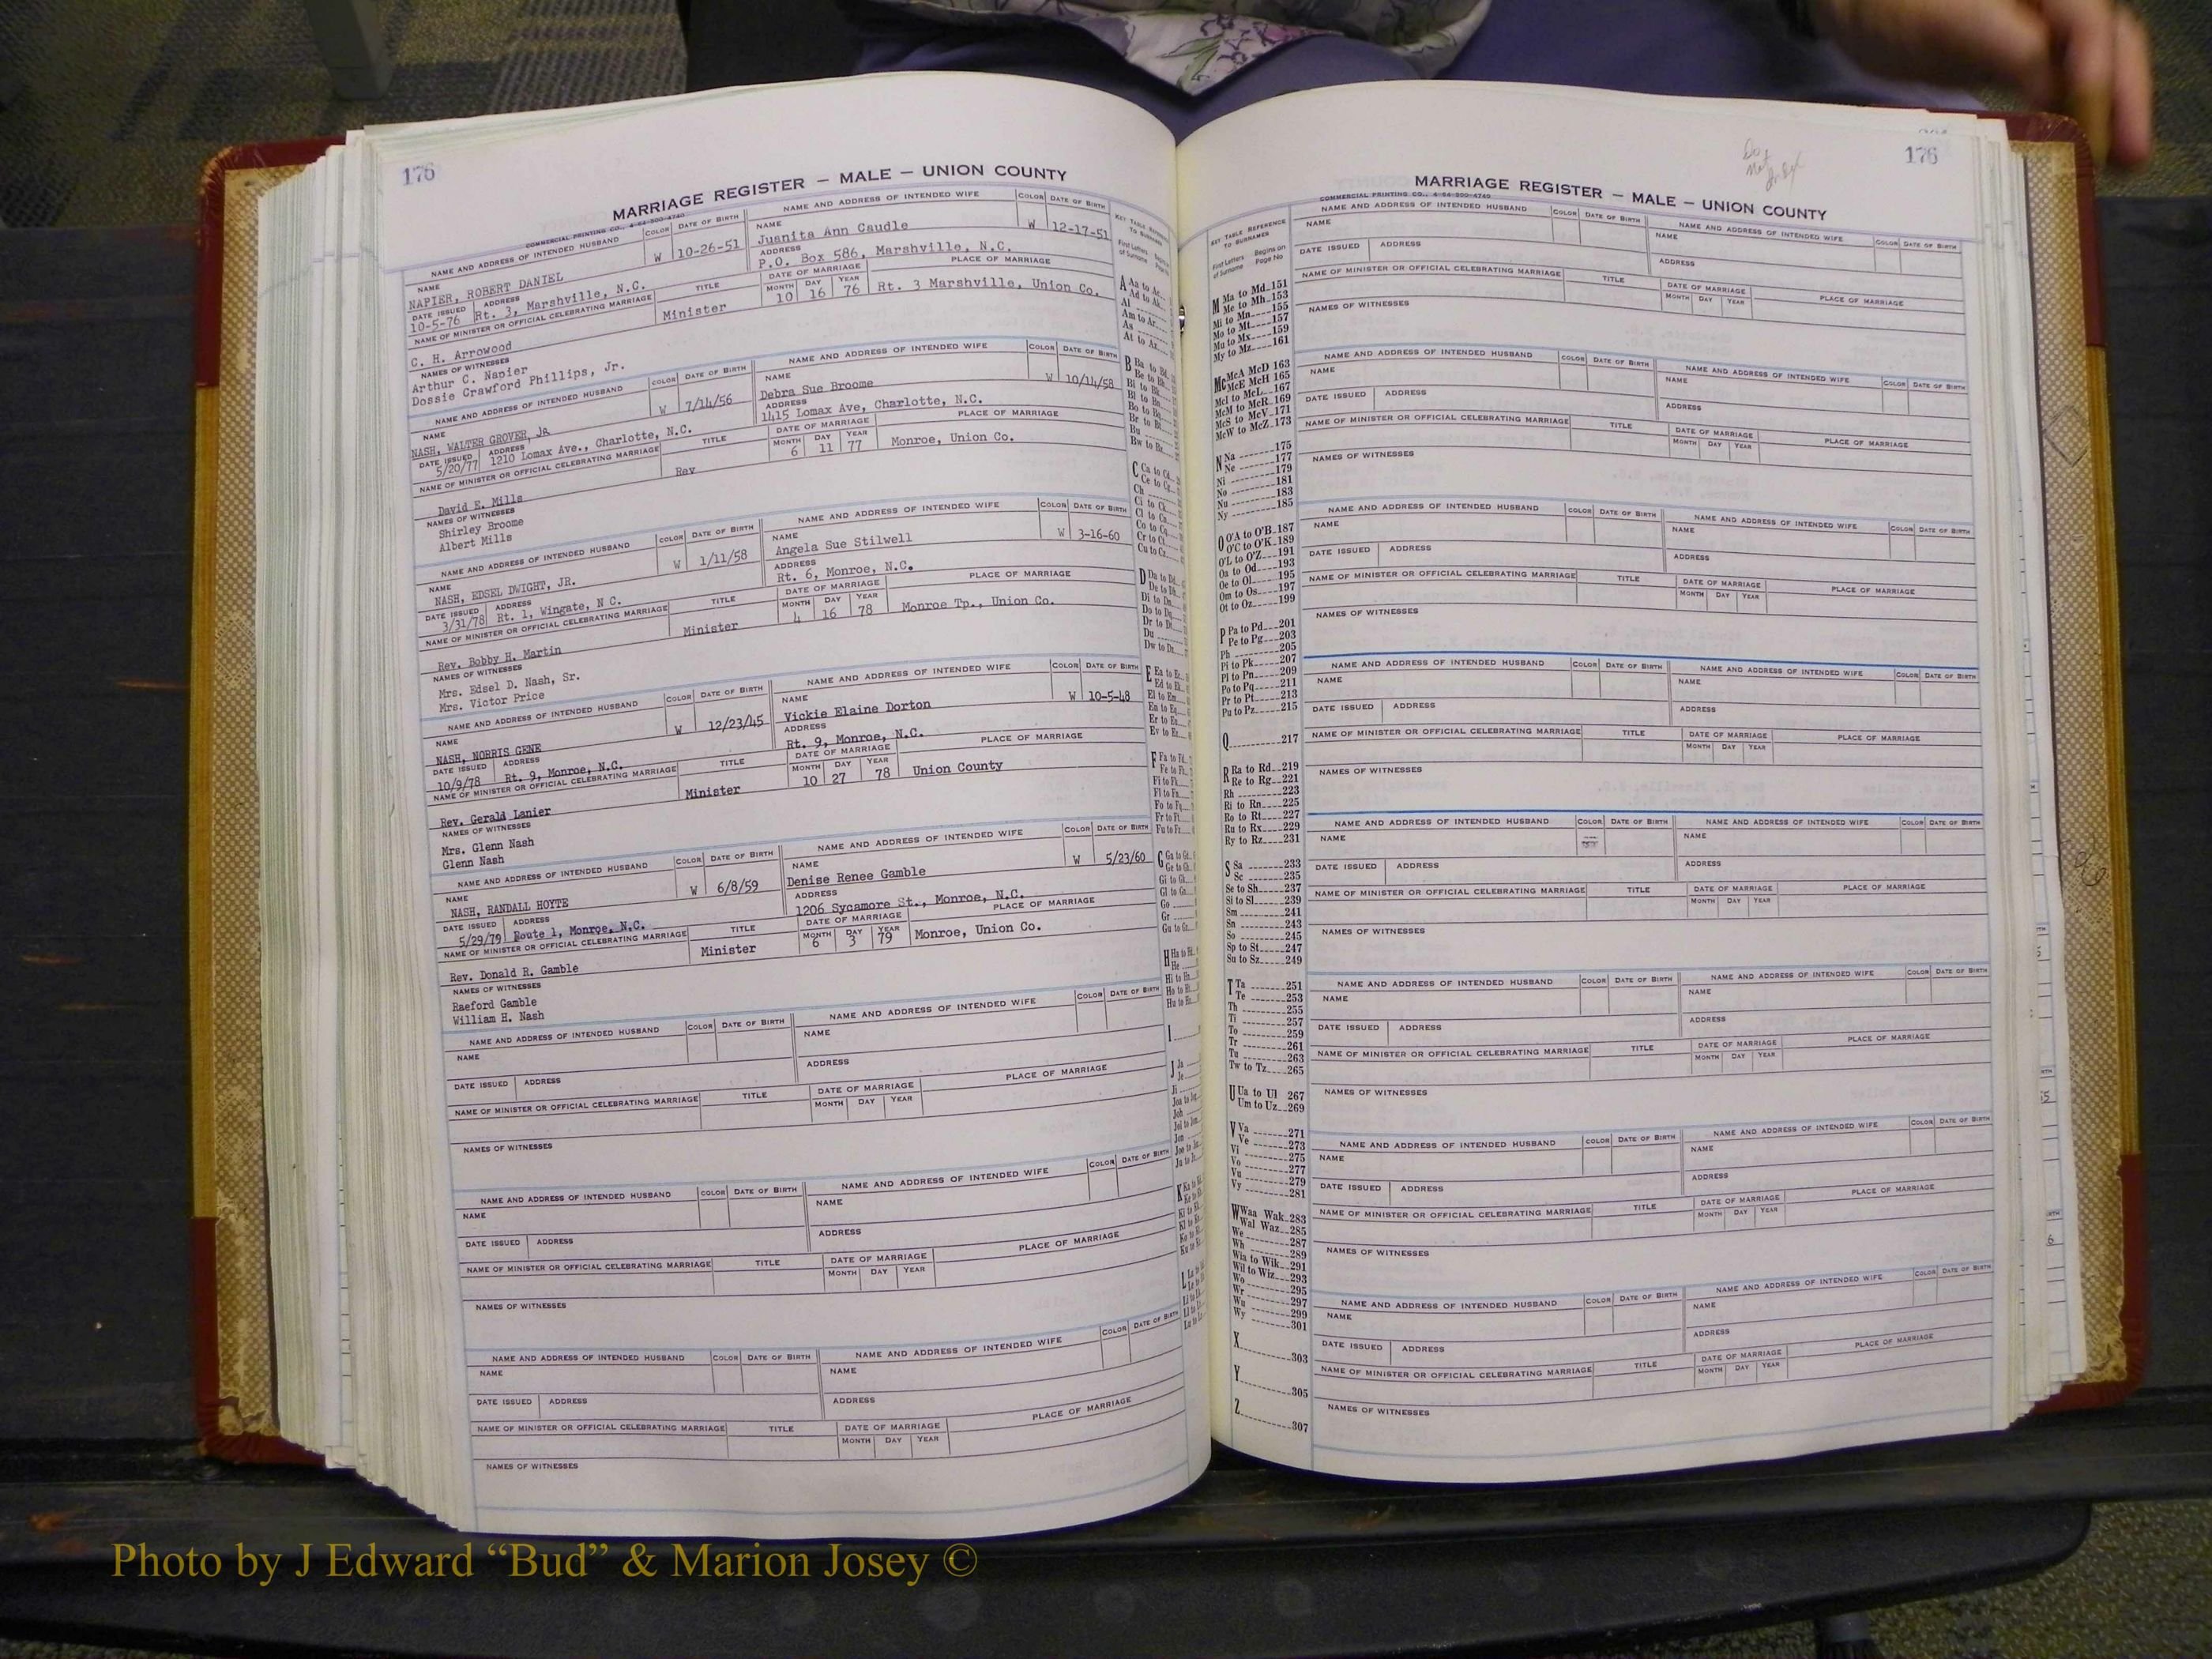 176
MARRIAGE REGISTER – MALE – UNION COUNTY
COMMERCIAL PRINTING CO., 4-64-500-4740
NAME AND ADDRESS OF INTENDED HUSBAND COLOR DATE OF BIRTH NAME AND ADDRESS OF INTENDED WIFE COLOR DATE OF BIRTH
NAME W 10-26-51 NAME W 12-17-51
NAPIER, ROBERT DANIEL Juanita Ann Caudle
DATE ISSUED ADDRESS ADDRESS
10-5-76 Rt. 3, Marshville, N.C. P.O. Box 586, Marshville, N.C.
NAME OF MINISTER OR OFFICIAL CELEBRATING MARRIAGE TITLE DATE OF MARRIAGE PLACE OF MARRIAGE
MONTH DAY YEAR
Minister 10 16 76 Rt. 3 Marshville, Union Co.
C. H. Arrowood
NAMES OF WITNESSES
Arthur C. Napier
Dossie Crawford Phillips, Jr.
NAME AND ADDRESS OF INTENDED HUSBAND COLOR DATE OF BIRTH NAME AND ADDRESS OF INTENDED WIFE COLOR DATE OF BIRTH
NAME W 7/14/56 NAME W 10/14/58
NASH, WALTER GROVER, JR Debra Sue Broome
DATE ISSUED ADDRESS ADDRESS
5/20/77 1210 Lomax Ave., Charlotte, N.C. 1415 Lomax Ave, Charlotte, N.C.
NAME OF MINISTER OR OFFICIAL CELEBRATING MARRIAGE TITLE DATE OF MARRIAGE PLACE OF MARRIAGE
MONTH DAY YEAR
Rev 6 11 77 Monroe, Union Co.
David E. Mills
NAMES OF WITNESSES
Shirley Broome
Albert Mills
NAME AND ADDRESS OF INTENDED HUSBAND COLOR DATE OF BIRTH NAME AND ADDRESS OF INTENDED WIFE COLOR DATE OF BIRTH
NAME W 1/11/58 NAME W 3-16-60
NASH, EDSEL DWIGHT, JR. Angela Sue Stilwell
DATE ISSUED ADDRESS ADDRESS
3/31/78 Rt. 1, Wingate, N C. Rt. 6, Monroe, N.C.
NAME OF MINISTER OR OFFICIAL CELEBRATING MARRIAGE TITLE DATE OF MARRIAGE PLACE OF MARRIAGE
MONTH DAY YEAR
Minister 4 16 78 Monroe Tp., Union Co.
Rev. Bobby H. Martin
NAMES OF WITNESSES
Mrs. Edsel D. Nash, Sr.
Mrs. Victor Price
NAME AND ADDRESS OF INTENDED HUSBAND COLOR DATE OF BIRTH NAME AND ADDRESS OF INTENDED WIFE COLOR DATE OF BIRTH
NAME W 12/23/45 NAME W 10-5-48
NASH, NORRIS GENE Vickie Elaine Dorton
DATE ISSUED ADDRESS ADDRESS
10/9/78 Rt. 9, Monroe, N.C. Rt. 9, Monroe, N.C.
NAME OF MINISTER OR OFFICIAL CELEBRATING MARRIAGE TITLE DATE OF MARRIAGE PLACE OF MARRIAGE
MONTH DAY YEAR
Minister 10 27 78 Union County
Rev. Gerald Lanier
NAMES OF WITNESSES
Mrs. Glenn Nash
Glenn Nash
NAME AND ADDRESS OF INTENDED HUSBAND COLOR DATE OF BIRTH NAME AND ADDRESS OF INTENDED WIFE COLOR DATE OF BIRTH
NAME W 6/8/59 NAME W 5/23/60
NASH, RANDALL HOYTE Denise Renee Gamble
DATE ISSUED ADDRESS ADDRESS
5/29/79 Route 1, Monroe, N.C. 1206 Sycamore St., Monroe, N.C.
NAME OF MINISTER OR OFFICIAL CELEBRATING MARRIAGE TITLE DATE OF MARRIAGE PLACE OF MARRIAGE
MONTH DAY YEAR
Minister 6 3 79 Monroe, Union Co.
Rev. Donald R. Gamble
NAMES OF WITNESSES
Raeford Gamble
William H. Nash
NAME AND ADDRESS OF INTENDED HUSBAND COLOR DATE OF BIRTH NAME AND ADDRESS OF INTENDED WIFE COLOR DATE OF BIRTH
NAME NAME
DATE ISSUED ADDRESS ADDRESS
NAME OF MINISTER OR OFFICIAL CELEBRATING MARRIAGE TITLE DATE OF MARRIAGE PLACE OF MARRIAGE
MONTH DAY YEAR
NAMES OF WITNESSES
NAME AND ADDRESS OF INTENDED HUSBAND COLOR DATE OF BIRTH NAME AND ADDRESS OF INTENDED WIFE COLOR DATE OF BIRTH
NAME NAME
DATE ISSUED ADDRESS ADDRESS
NAME OF MINISTER OR OFFICIAL CELEBRATING MARRIAGE TITLE DATE OF MARRIAGE PLACE OF MARRIAGE
MONTH DAY YEAR
NAMES OF WITNESSES
NAME AND ADDRESS OF INTENDED HUSBAND COLOR DATE OF BIRTH NAME AND ADDRESS OF INTENDED WIFE COLOR DATE OF BIRTH
NAME NAME
DATE ISSUED ADDRESS ADDRESS
NAME OF MINISTER OR OFFICIAL CELEBRATING MARRIAGE TITLE DATE OF MARRIAGE PLACE OF MARRIAGE
MONTH DAY YEAR
NAMES OF WITNESSES
176
Do Not
MARRIAGE REGISTER – MALE – UNION COUNTY
COMMERCIAL PRINTING CO., 4-64-500-4740
KEY TABLE REFERENCE
TO SURNAMES
First Letters of Surname Begins on Page No
M Ma to Md 151
Me to Mh 153
Mi to Mn 155
Mo to Mt 157
Mu to Mx 159
My to Mz 161
Mc McA McD 163
McE McH 165
McI to McL 167
McM to McR 169
McS to McV 171
McW to McZ 173
N Na 175
Ne 177
Ni 179
No 181
Nu 183
Ny 185
O O'A to O'B 187
O'C to O'K 189
O'L to O'Z 191
Oa to Od 193
Oe to Ol 195
Om to Os 197
Ot to Oz 199
P Pa to Pd 201
Pe to Pg 203
Ph 205
Pi to Pk 207
Pl to Pn 209
Po to Pq 211
Pr to Pt 213
Pu to Pz 215
Q 217
R Ra to Rd 219
Re to Rg 221
Rh 223
Ri to Rn 225
Ro to Rt 227
Ru to Rx 229
Ry to Rz 231
S Sa 233
Sc 235
Se to Sh 237
Si to Sl 239
Sm 241
Sn 243
So 245
Sp to St 247
Su to Sz 249
T Ta 251
Te 253
Th 255
Ti 257
To 259
Tr 261
Tu 263
Tw to Tz 265
U Ua to Ul 267
Um to Uz 269
V Va 271
Ve 273
Vi 275
Vo 277
Vu 279
Vy 281
W Waa Wak 283
Wal Waz 285
We 287
Wh 289
Wia to Wik 291
Wil to Wiz 293
Wo 295
Wr 297
Wu 299
Wy 301
X 303
Y 305
Z 307
NAME AND ADDRESS OF INTENDED HUSBAND COLOR DATE OF BIRTH NAME AND ADDRESS OF INTENDED WIFE COLOR DATE OF BIRTH
NAME NAME
DATE ISSUED ADDRESS ADDRESS
NAME OF MINISTER OR OFFICIAL CELEBRATING MARRIAGE TITLE DATE OF MARRIAGE PLACE OF MARRIAGE
MONTH DAY YEAR
NAMES OF WITNESSES
NAME AND ADDRESS OF INTENDED HUSBAND COLOR DATE OF BIRTH NAME AND ADDRESS OF INTENDED WIFE COLOR DATE OF BIRTH
NAME NAME
DATE ISSUED ADDRESS ADDRESS
NAME OF MINISTER OR OFFICIAL CELEBRATING MARRIAGE TITLE DATE OF MARRIAGE PLACE OF MARRIAGE
MONTH DAY YEAR
NAMES OF WITNESSES
NAME AND ADDRESS OF INTENDED HUSBAND COLOR DATE OF BIRTH NAME AND ADDRESS OF INTENDED WIFE COLOR DATE OF BIRTH
NAME NAME
DATE ISSUED ADDRESS ADDRESS
NAME OF MINISTER OR OFFICIAL CELEBRATING MARRIAGE TITLE DATE OF MARRIAGE PLACE OF MARRIAGE
MONTH DAY YEAR
NAMES OF WITNESSES
NAME AND ADDRESS OF INTENDED HUSBAND COLOR DATE OF BIRTH NAME AND ADDRESS OF INTENDED WIFE COLOR DATE OF BIRTH
NAME NAME
DATE ISSUED ADDRESS ADDRESS
NAME OF MINISTER OR OFFICIAL CELEBRATING MARRIAGE TITLE DATE OF MARRIAGE PLACE OF MARRIAGE
MONTH DAY YEAR
NAMES OF WITNESSES
NAME AND ADDRESS OF INTENDED HUSBAND COLOR DATE OF BIRTH NAME AND ADDRESS OF INTENDED WIFE COLOR DATE OF BIRTH
NAME NAME
DATE ISSUED ADDRESS ADDRESS
NAME OF MINISTER OR OFFICIAL CELEBRATING MARRIAGE TITLE DATE OF MARRIAGE PLACE OF MARRIAGE
MONTH DAY YEAR
NAMES OF WITNESSES
NAME AND ADDRESS OF INTENDED HUSBAND COLOR DATE OF BIRTH NAME AND ADDRESS OF INTENDED WIFE COLOR DATE OF BIRTH
NAME NAME
DATE ISSUED ADDRESS ADDRESS
NAME OF MINISTER OR OFFICIAL CELEBRATING MARRIAGE TITLE DATE OF MARRIAGE PLACE OF MARRIAGE
MONTH DAY YEAR
NAMES OF WITNESSES
NAME AND ADDRESS OF INTENDED HUSBAND COLOR DATE OF BIRTH NAME AND ADDRESS OF INTENDED WIFE COLOR DATE OF BIRTH
NAME NAME
DATE ISSUED ADDRESS ADDRESS
NAME OF MINISTER OR OFFICIAL CELEBRATING MARRIAGE TITLE DATE OF MARRIAGE PLACE OF MARRIAGE
MONTH DAY YEAR
NAMES OF WITNESSES
NAME AND ADDRESS OF INTENDED HUSBAND COLOR DATE OF BIRTH NAME AND ADDRESS OF INTENDED WIFE COLOR DATE OF BIRTH
NAME NAME
DATE ISSUED ADDRESS ADDRESS
NAME OF MINISTER OR OFFICIAL CELEBRATING MARRIAGE TITLE DATE OF MARRIAGE PLACE OF MARRIAGE
MONTH DAY YEAR
NAMES OF WITNESSES
Photo by J Edward “Bud” & Marion Josey ©